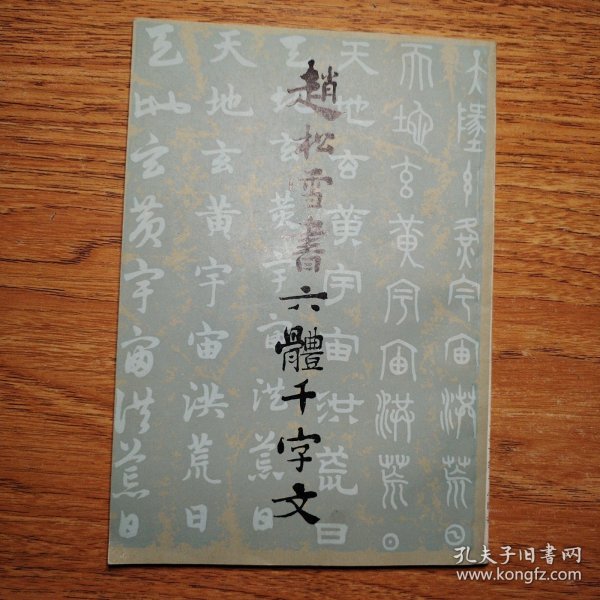 趙松雪書六體千字文
天地玄黃宇宙洪荒日
天地玄黃宇宙洪荒日
天地玄黃宇宙洪荒日
天地玄黃宇宙洪荒日
天地玄黃宇宙洪荒日
孔夫子旧书网
www.kongfz.com